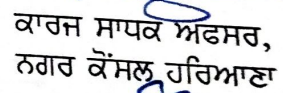 ਕਾਰਜ ਸਾਧਕ ਅਫਸਰ,
ਨਗਰ ਕੌਂਸਲ ਹਰਿਆਣਾ